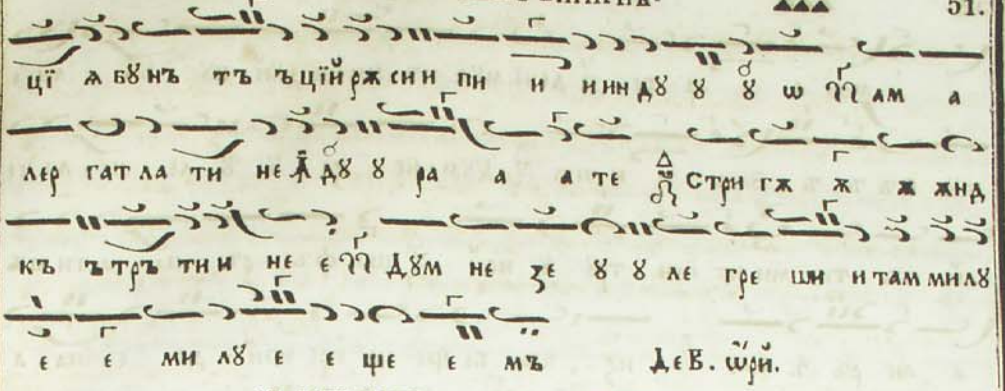 51.
цї я бꙋнъ тъ ъ цїй рѫ си и пи и и ин дꙋ ꙋ ꙋ ѡ ам а
лер гат ла ти не дꙋ ꙋ ра а а те стри гѫ ѫ ѫ ѫнд
къ ъ тръ ти и не е Дꙋм не зе ꙋ ꙋ ле гре ши и там ми лꙋ
е е ми лꙋ е е ще е мъ Де В. ѡри.